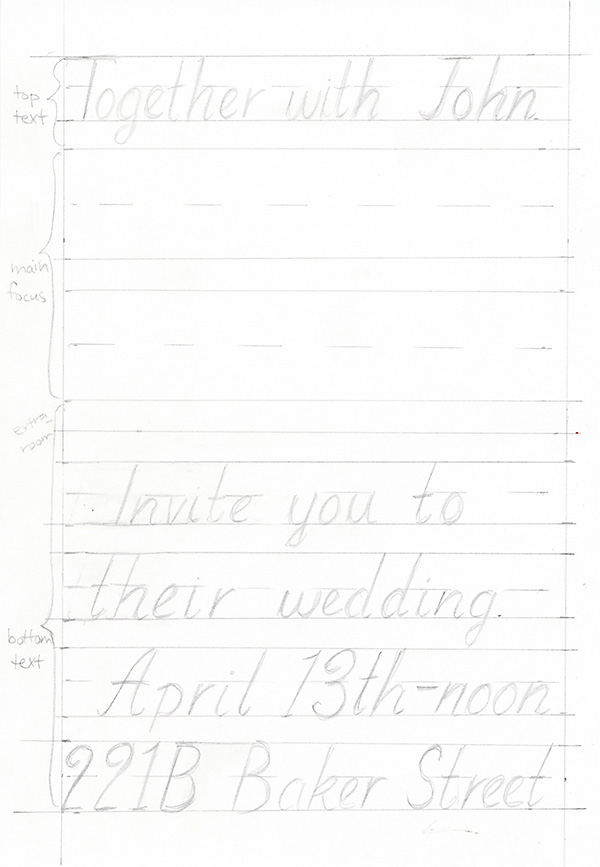 top
text
Together with John.
main
focus
extra
room
Invite you to
their wedding.
bottom
text
April 13th-noon.
221B Baker Street